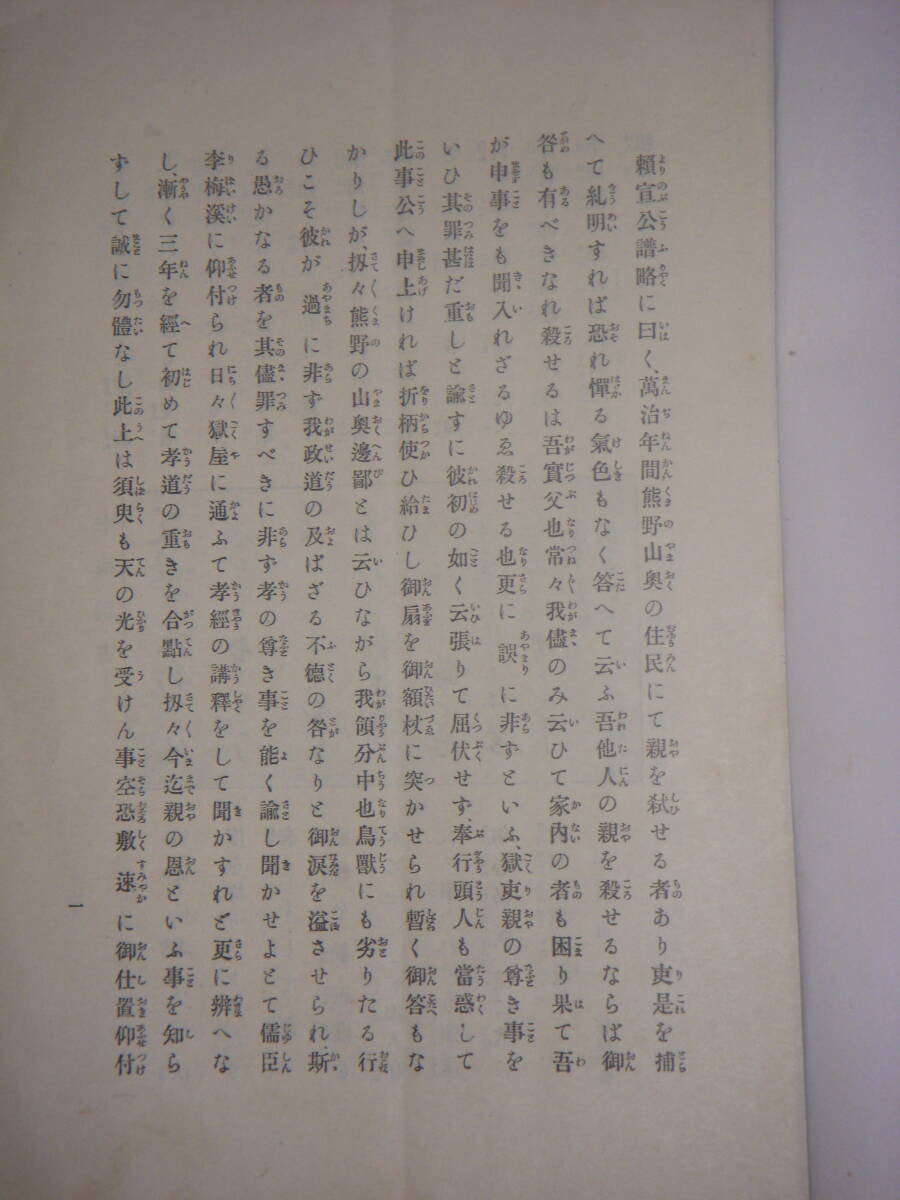 頼宣公譜略に曰く、萬治年間熊野山奧の住民にて親を弑せる者あり吏是を捕
へて糺明すれば恐れ憚る氣色もなく答へて云ふ吾他人の親を殺せるならば御
咎も有べきなれ殺せるは吾實父也常々我儘のみ云ひて家内の者も困り果て吾
が申事をも聞入れざるゆゑ殺せる也更に誤に非ずといふ、獄吏親の尊き事を
いひ其罪甚だ重しと諭すに彼初の如く云張りて屈伏せず、奉行頭人も當惑して
此事公へ申上ければ折柄使ひ給ひし御扇を御額杖に突かせられ暫く御答もな
かりしが、扨々熊野の山奧邊鄙とは云ひながら我領分中也鳥獸にも劣りたる行
ひこそ彼が過に非ず我政道の及ばざる不德の咎なりと御淚を溢させられ、斯
る愚かなる者を其儘罪すべきに非ず孝の尊き事を能く諭し聞かせよとて儒臣
李梅溪に仰付られ日々獄屋に通ふて孝經の講釋をして聞かすれど更に辨へな
し、漸く三年を經て初めて孝道の重きを合點し扨々今迄親の恩といふ事を知ら
ずして誠に勿體なし此上は須臾も天の光を受けん事空恐敷速に御仕置仰付
一